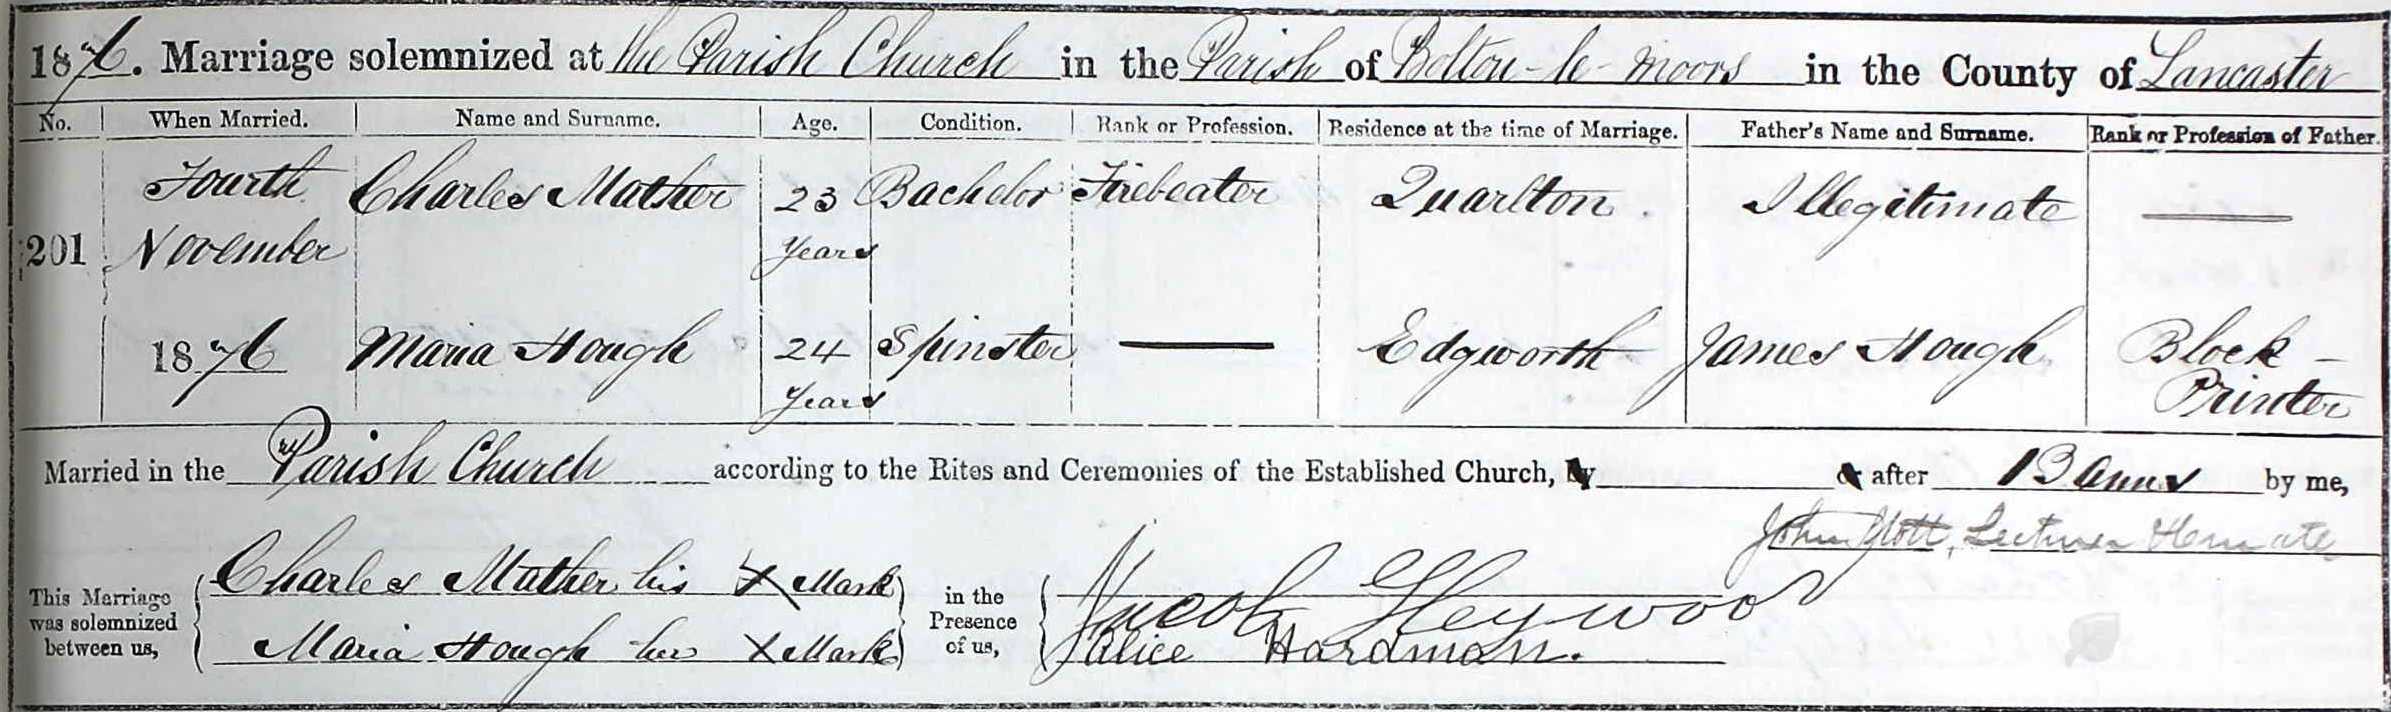 1876. Marriage solemnized at the Parish Church in the Parish of Bolton-le-Moors in the County of Lancaster
No. When Married. Name and Surname. Age. Condition. Rank or Profession. Residence at the time of Marriage. Father's Name and Surname. Rank or Profession of Father.
201 Fourth November 1876 Charles Mather 23 Years Bachelor Firebeater Quarlton. Illegitimate
Maria Hough 24 Years Spinster Edgworth James Hough Block-Printer
Married in the Parish Church according to the Rites and Ceremonies of the Established Church, by or after Banns by me,
John Lecturer
This Marriage was solemnized between us, Charles Mather his X Mark in the Presence of us, Jacob Heywood
Maria Hough her X Mark Alice Hardman.